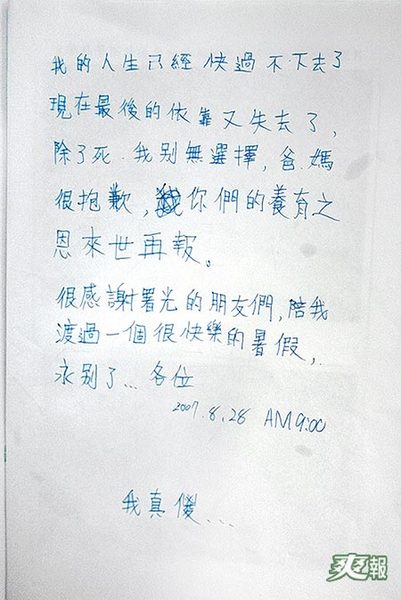 我的人生已經快過不下去了
現在最後的依靠又失去了,
除了死.我別無選擇,爸.媽
很抱歉,你們的養育之
恩來世再報。
很感謝署光的朋友們,陪我
渡過一個很快樂的暑假,
永別了...各位
2007.8.28 AM9:00
我真傻...
爽報